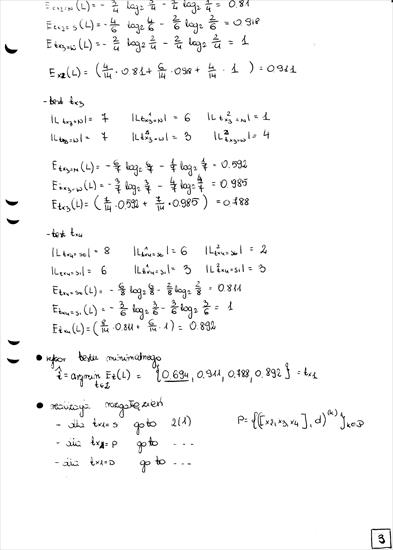 E_{tx2=N}(L) = - 3/4 log₂ 3/4 - 1/4 log₂ 1/4 = 0.81
E_{tx2=S}(L) = - 4/6 log₂ 4/6 - 2/6 log₂ 2/6 = 0.918
E_{tx2=W}(L) = - 2/4 log₂ 2/4 - 2/4 log₂ 2/4 = 1
E_{x2}(L) = (4/14 · 0.81 + 6/14 · 0.98 + 4/14 · 1) = 0.911
- test tx3
|L_{tx3=N}| = 7 |L¹_{tx3=N}| = 6 |L²_{tx3=N}| = 1
|L_{tx3=W}| = 7 |L¹_{tx3=W}| = 3 |L²_{tx3=W}| = 4
E_{tx3=N}(L) = - 6/7 log₂ 6/7 - 1/7 log₂ 1/7 = 0.592
E_{tx3=W}(L) = - 3/7 log₂ 3/7 - 4/7 log₂ 4/7 = 0.985
E_{tx3}(L) = (7/14 · 0.592 + 7/14 · 0.985) = 0.788
- test tx4
|L_{tx4=SŁ}| = 8 |L¹_{tx4=SŁ}| = 6 |L²_{tx4=SŁ}| = 2
|L_{tx4=SI}| = 6 |L¹_{tx4=SI}| = 3 |L²_{tx4=SI}| = 3
E_{tx4=SŁ}(L) = - 6/8 log₂ 6/8 - 2/8 log₂ 2/8 = 0.811
E_{tx4=SI}(L) = - 3/6 log₂ 3/6 - 3/6 log₂ 3/6 = 1
E_{tx4}(L) = (8/14 · 0.811 + 6/14 · 1) = 0.892
• wybór testu minimalnego
t̂ = argmin_{t∈Z} E_t(L) = {0.694, 0.911, 0.788, 0.892} = tx1
• realizacja rozgałęzień
- dla tx1=S go to 2(1) P = {([x2,x3,x4], d)^{(k)}}_{k∈P}
- dla tx1=P go to ...
- dla tx1=D go to ...
3